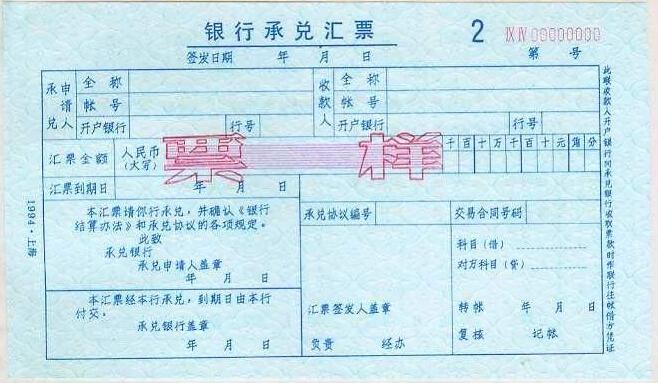 银行承兑汇票 2 ⅨⅣ00000000
签发日期 年 月 日 第 号
承兑申请人 全称 收款人 全称
帐号 帐号
开户银行 行号 开户银行 行号
汇票金额 人民币(大写) 票样 千百十万千百十元角分
汇票到期日 年 月 日
本汇票请你行承兑，并确认《银行
结算办法》和承兑协议的各项规定。
此致
承兑银行
承兑申请人盖章
年 月 日
本汇票经本行承兑，到期日由本行
付交。
承兑银行盖章
年 月 日
承兑协议编号 交易合同号码
汇票签发人盖章
负责 经办
科目(借)
对方科目(贷)
转帐 年 月 日
复核 记帐
此联收款人开户银行向承兑银行收取票款时作联行往帐借方凭证
1994·上海